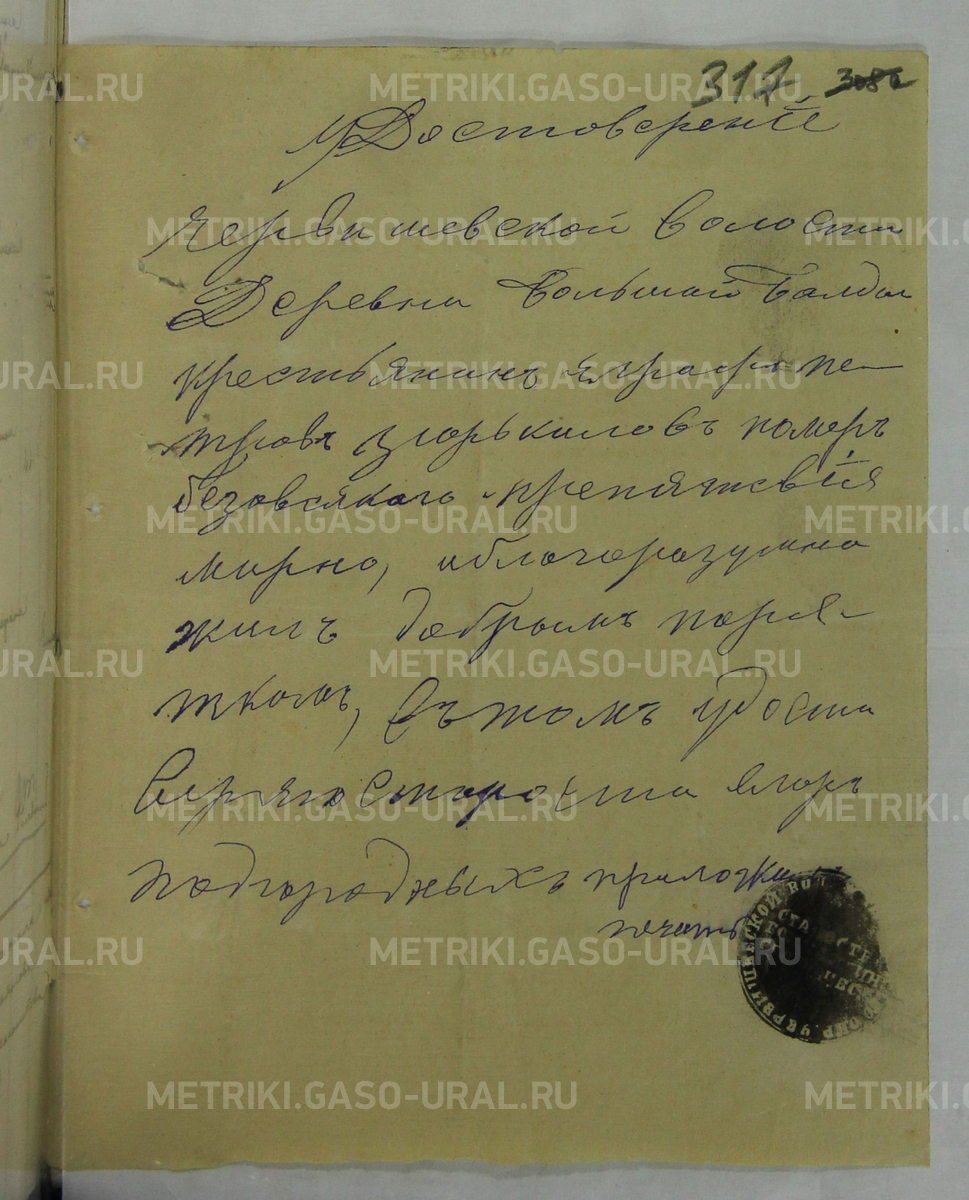 317 308б
Удостоверение
Червишевской волости
Деревни Большай Балды
крестьянин Пе-
тровъ помер
безовсякаго препятсвия
мирно, иблогоразумно
жилъ добрымъ поря-
ткомъ, Въ томъ удосто
веряю Староста Егоръ
Подгородныхъ приложил
печать
ЧЕРВИШЕВСКОЙ ВОЛ
METRIKI.GASO-URAL.RU